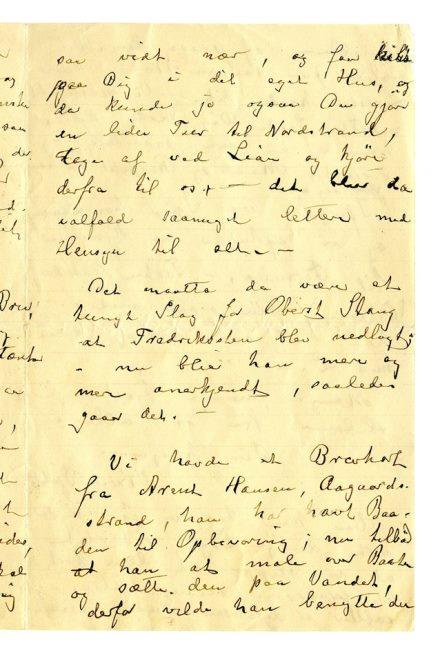 saa vidt nær, og faa kikke
paa Dig i dit eget Hus, og
da kunde jo ogsaa Du gjøre
en liden Tur til Nordstrand,
tage af ved Lian og kjøre
derfra til os, — det blir da
ialfald saameget lettere med
Hensyn til alt. —
Det maatte da være et
tungt Slag for Oberst Stang
at Fredriksten blev nedlagt;
- nu blir han mer og
mer anerkjendt, saaledes
gaar det. —
Vi havde et Brevkort
fra Arent Hansen, Aagaards-
strand, han har havt Baa-
den til Opbevaring; nu tilbød
han at male over Baaden
og sætte den paa Vandet,
derfor vilde han benytte den